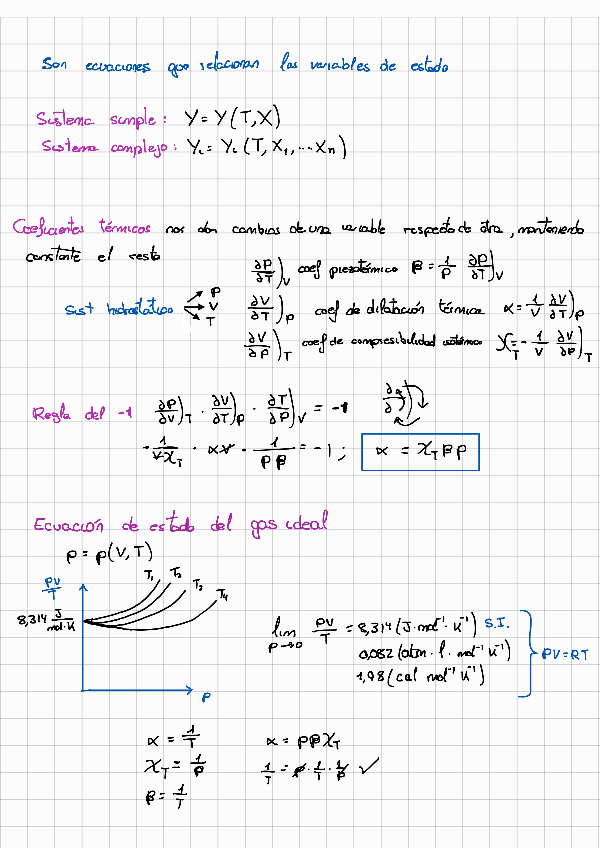 Son ecuaciones que relacionan las variables de estado
Sistema simple: Y = Y(T,X)
Sistema complejo: Yᵢ = Yᵢ(T, X₁, ... Xₙ)
Coeficientes térmicos nos dan cambios de una variable respecto de otra, manteniendo
constante el resto
∂P/∂T)_V coef piezotérmico β = 1/P ∂P/∂T)_V
Sist hidrostático P V T
∂V/∂T)_P coef de dilatación térmica α = 1/V ∂V/∂T)_P
∂V/∂P)_T coef de compresibilidad isotérmo χ_T = -1/V ∂V/∂P)_T
Regla del -1 ∂P/∂V)_T · ∂V/∂T)_P · ∂T/∂P)_V = -1
-1/(Vχ_T) · αV · 1/(Pβ) = -1; α = χ_T β P
Ecuación de estado del gas ideal
P = P(V,T)
PV/T
T₁ T₂ T₃ T₄
8,314 J/mol·K
P
lim P→0 PV/T = 8,314 (J·mol⁻¹·K⁻¹) S.I.
0,082 (atm·l·mol⁻¹K⁻¹) PV=RT
1,98 (cal mol⁻¹K⁻¹)
α = 1/T α = Pβχ_T
χ_T = 1/P 1/T = P·1/T·1/P ✓
β = 1/T